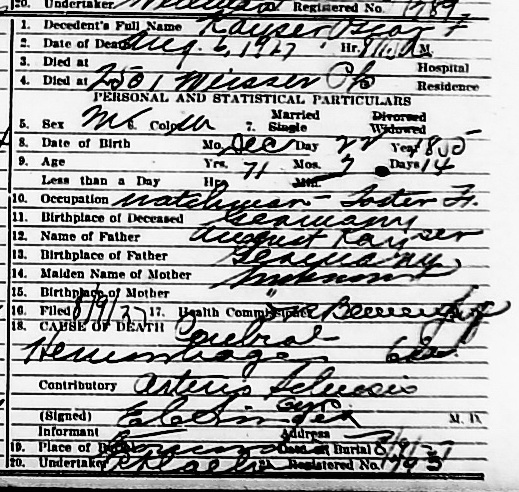 20. Undertaker Registered No. 1789
1. Decedent's Full Name Kayser Oscar F
2. Date of Death Aug. 6, 1927 Hr. M.
3. Died at Hospital
4. Died at 2501 Residence
PERSONAL AND STATISTICAL PARTICULARS
5. Sex M 6. Color W 7. Married Single Divorced Widowed
8. Date of Birth Mo. Dec Day 22 Year 1855
9. Age Yrs. 71 Mos. 7 Days 14
Less than a Day Hr. Min.
10. Occupation Watchman
11. Birthplace of Deceased Germany
12. Name of Father August Kayser
13. Birthplace of Father Germany
14. Maiden Name of Mother Unknown
15. Birthplace of Mother "
16. Filed 8/9/27 17. Health Commissioner
18. CAUSE OF DEATH Cerebral
Hemorrhage
Contributory Arterio Sclerosis
(Signed) M. D.
Informant Address
19. Place of Date of Burial 8/9/27
20. Undertaker Registered No.